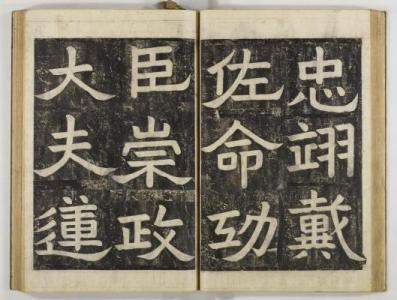 忠翊戴
佐命功
臣崇政
大夫蓮